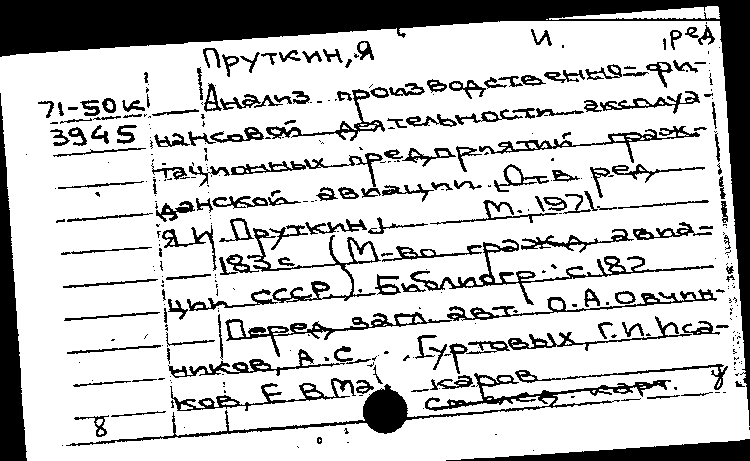 Пруткин, Я И. , ред
71-50к Анализ производственно-фи-
3945 нансовой деятельности эксплуа-
тационных предприятий граж-
данской авиации. [Отв. ред.
Я.И. Пруткин]. М., 1971.
183 с. (М-во гражд. авиа-
ции СССР). Библиогр.: с. 182
Перед загл. авт. О.А. Овчин-
ников, А.С. Гуртовых, Г.И. Иса-
ков, Е.В. Ма каров
см. след. карт.
8